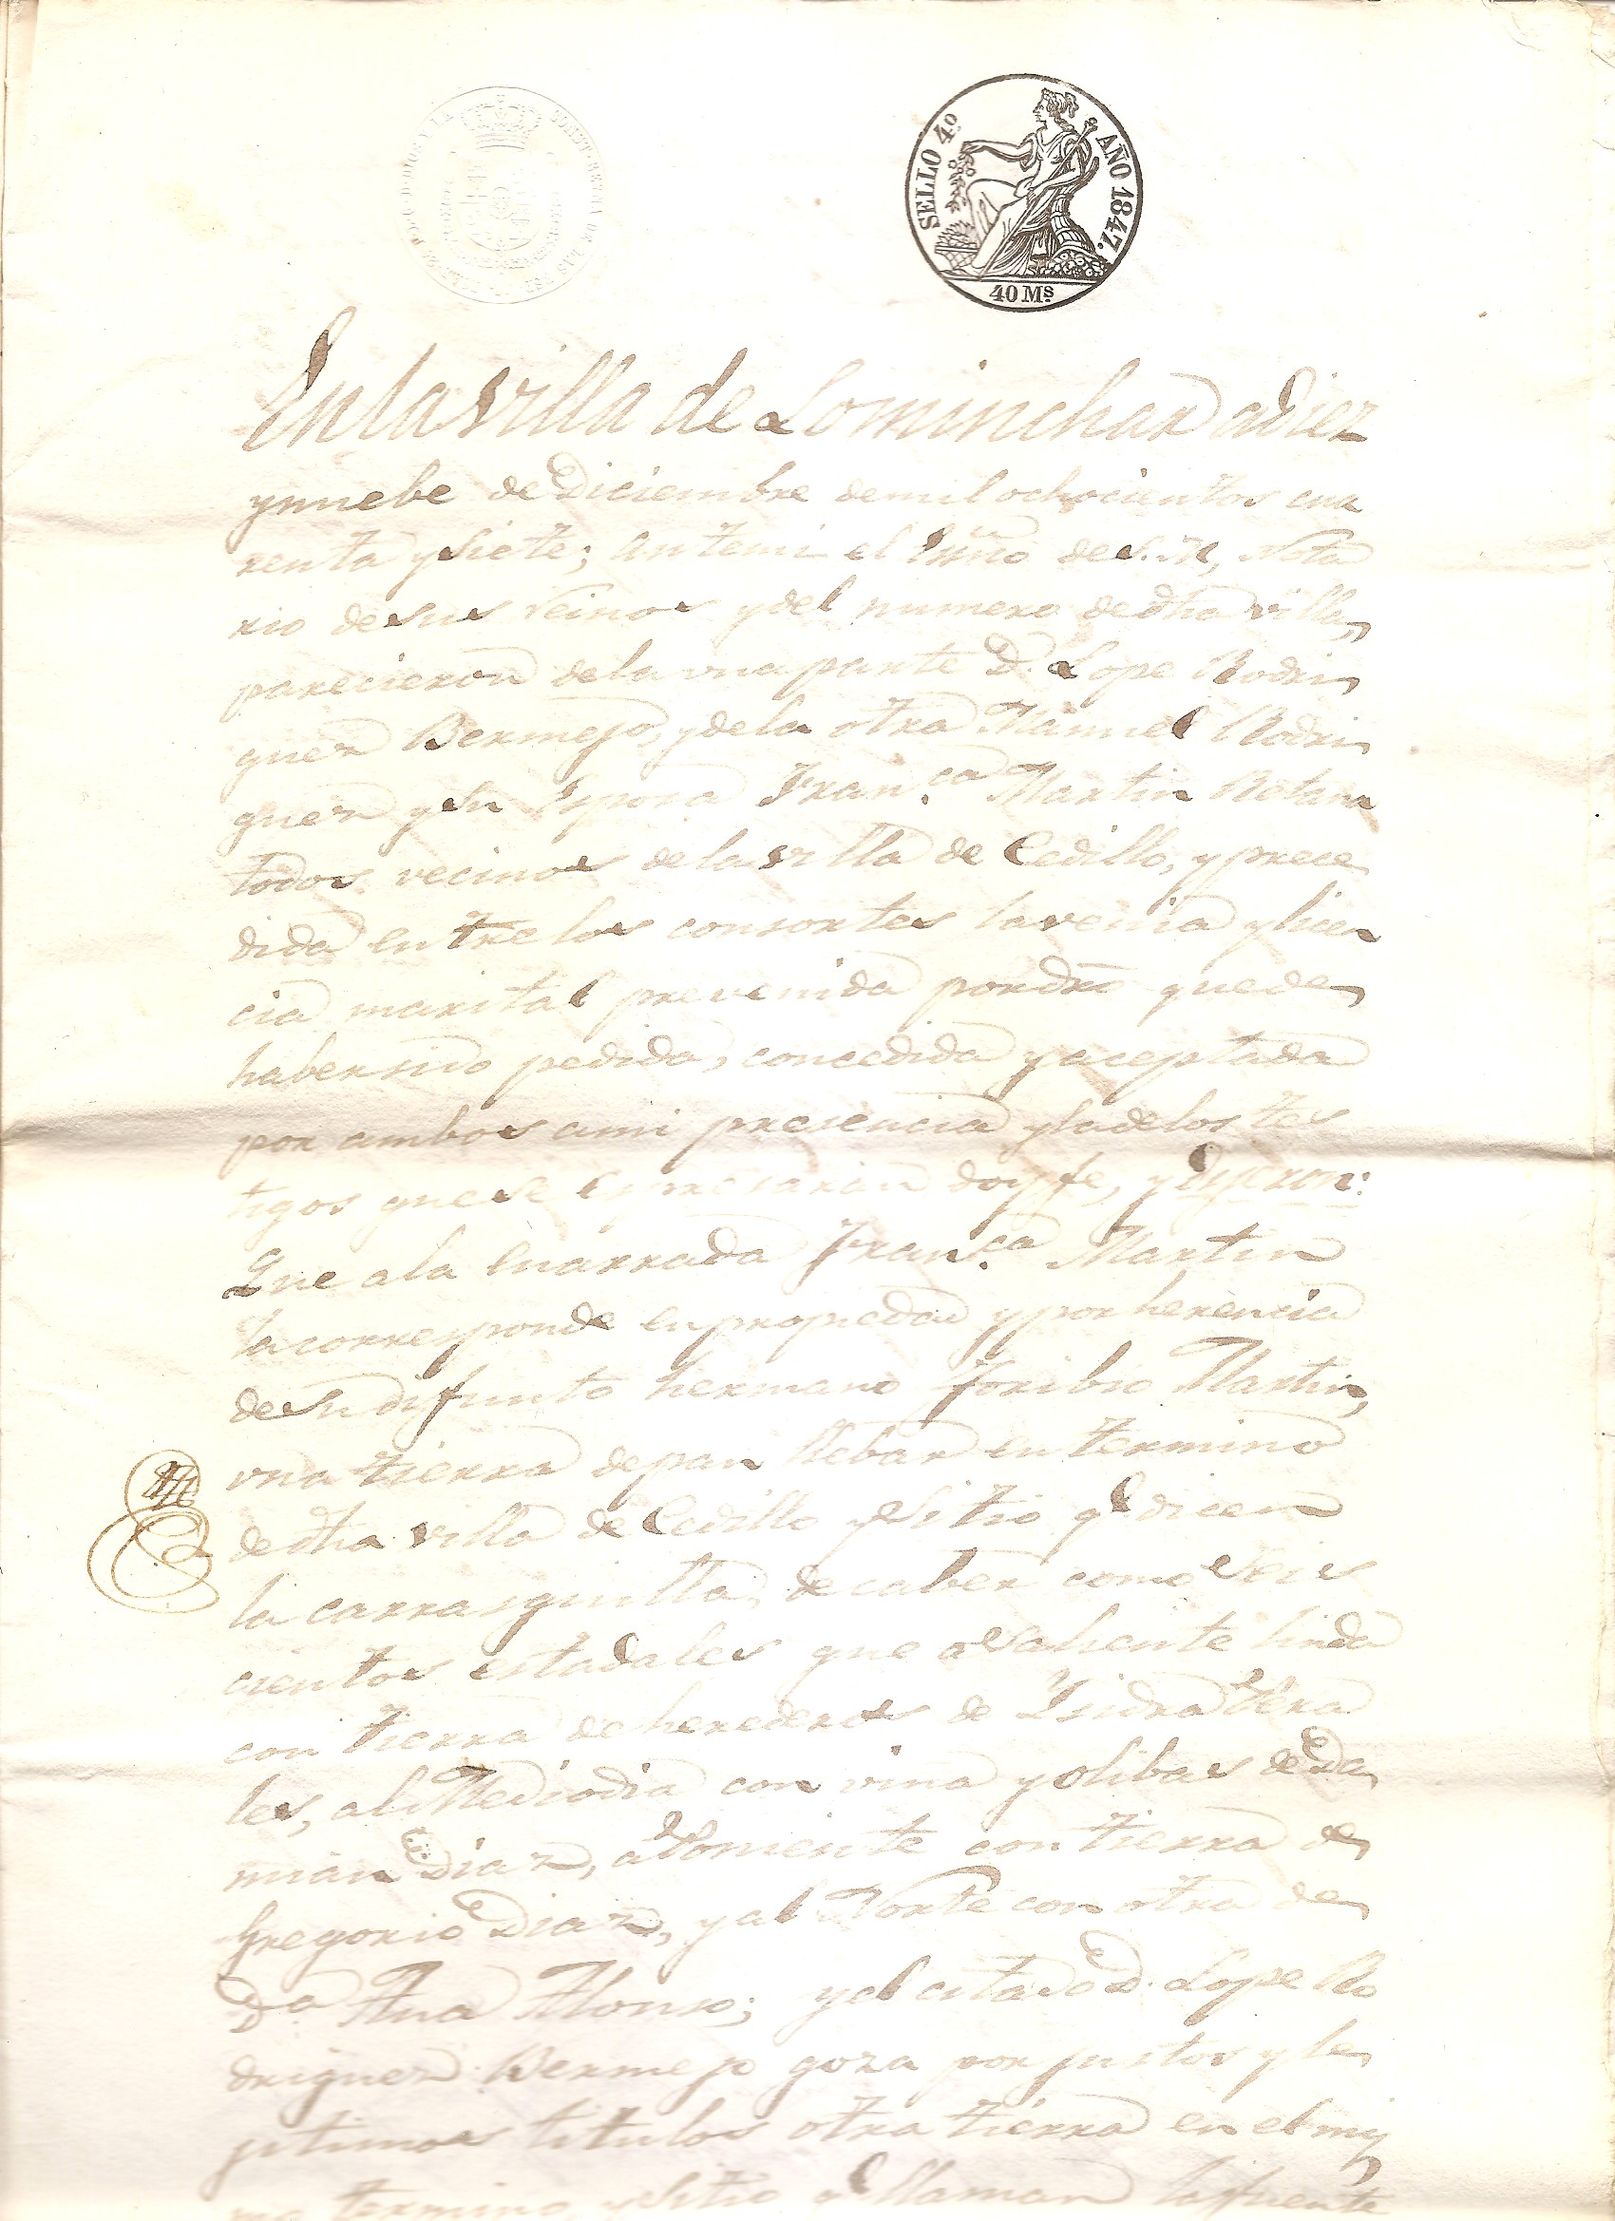 SELLO 4º AÑO 1847.
40 Mˢ
En la villa de Lominchar a diez
y nuebe de Diciembre de mil ochocientos cua
renta y siete; ante mi el Esño de S. M., Nota
rio de sus Reinos y del numero de dha villa,
parecieron de la una parte D. Lope Rodri
guez Bermejo, y de la otra Manuel Rodri
guez y su Esposa Franca Martin
todos vecinos de la villa de Cedillo, y prece
dida entre los consortes la venia y licen
cia marital prevenida por dro que de
haber sido pedida, concedida y aceptada
por ambos a mi presencia y la de los tes
tigos que se espresaran doy fe, y Dijeron:
Que a la enarrada Franca Martin
la corresponde en propiedad y por herencia
de su difunto hermano Toribio Martin,
una tierra de pan llebar en termino
de dha villa de Cedillo y sitio qe dicen
la carrasquilla, de caber como seis
cientos estadales que a Saliente linda
con tierra de herederos de Ysidra
les, al Mediodia con viña y olibas de Da
mian Diaz, a Poniente con tierra de
Gregorio Diaz, y al Norte con otra de
Da Ana Alonso; y el citado D. Lope Ro
driguez Bermejo goza por justos y le
jitimos titulos otra tierra en el mis
mo termino, y sitio qe llaman la fuente